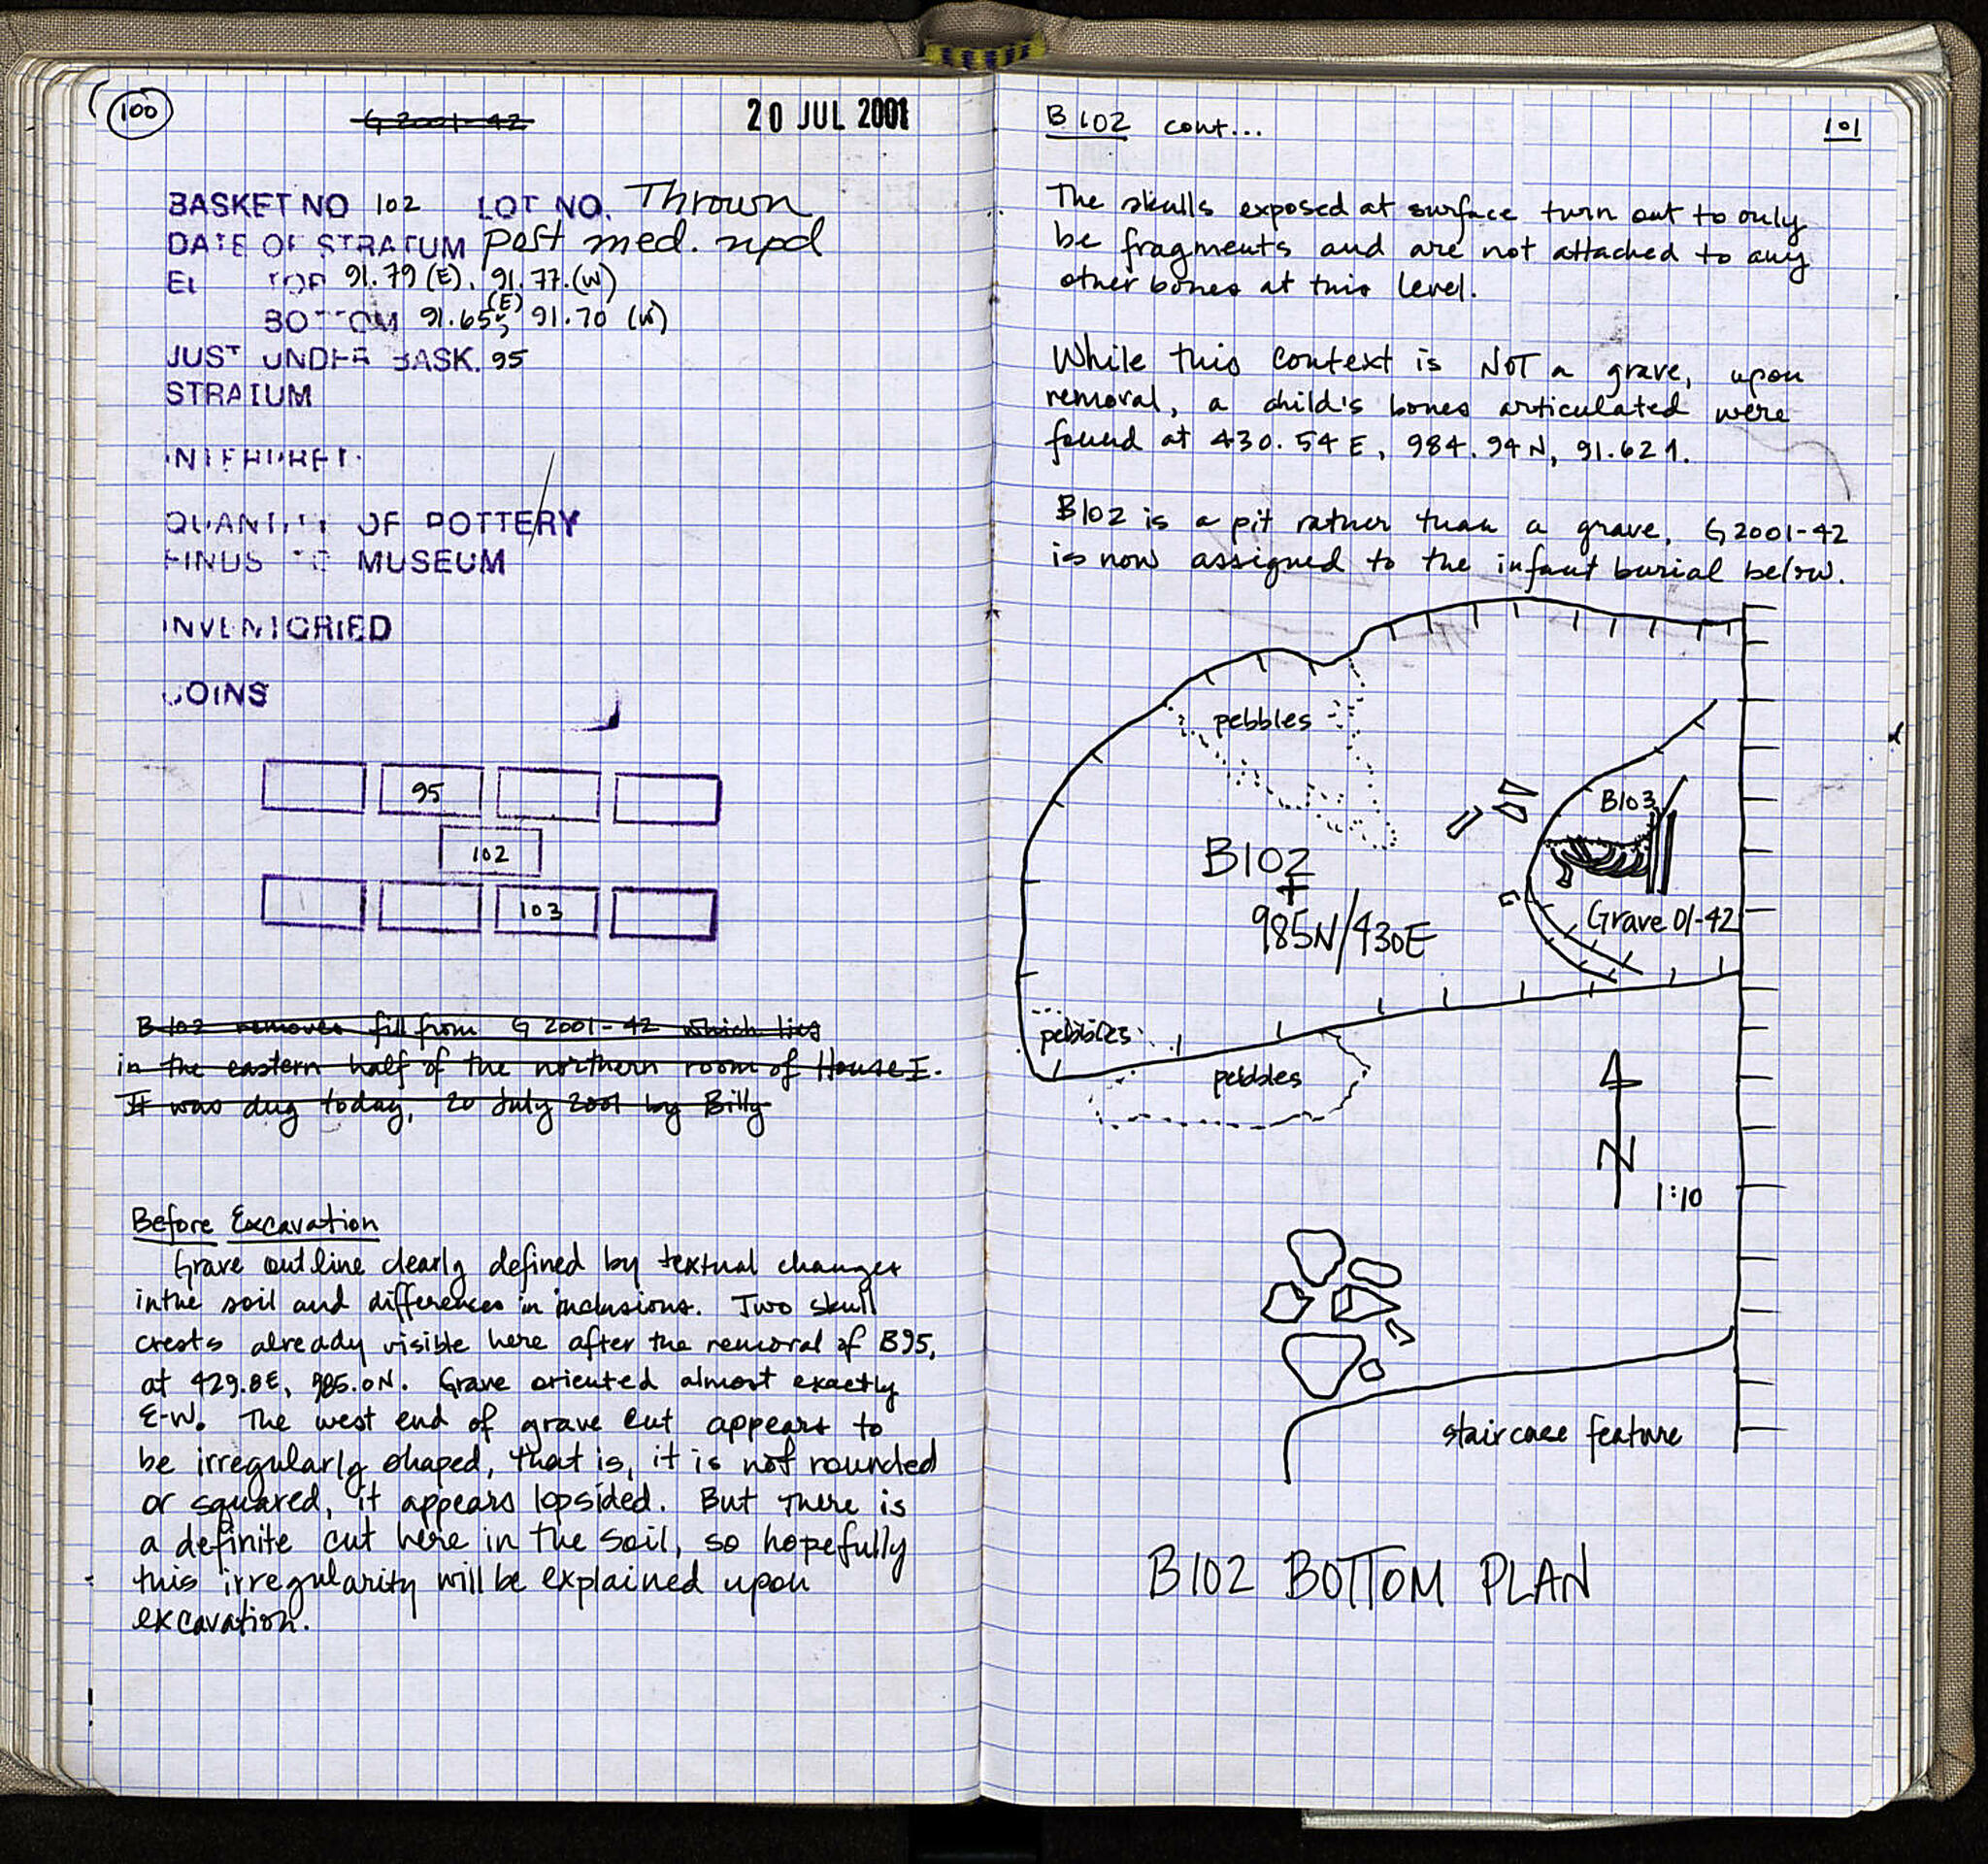 100
G 2001-42
20 JUL 2001
BASKET NO 102 LOT NO. Thrown
DATE OF STRATUM post med. npd
EL TOP 91.79 (E), 91.77 (W)
BOTTOM 91.65 (E); 91.70 (W)
JUST UNDER BASK. 95
STRATUM
INTERPRET.
QUANTITY OF POTTERY /
FINDS TO MUSEUM
INVENTORIED
COINS
95
102
103
B 102 removes fill from G 2001-42 which lies
in the eastern half of the northern room of House I.
It was dug today, 20 July 2001 by Billy
Before Excavation
Grave outline clearly defined by textual changes
in the soil and differences in inclusions. Two skull
crests already visible here after the removal of B95,
at 429.8E, 985.0N. Grave oriented almost exactly
E-W. The west end of grave cut appears to
be irregularly shaped, that is, it is not rounded
or squared, it appears lopsided. But there is
a definite cut here in the soil, so hopefully
this irregularity will be explained upon
excavation.
B 102 cont...
101
The skulls exposed at surface turn out to only
be fragments and are not attached to any
other bones at this level.
While this context is NOT a grave, upon
removal, a child's bones articulated were
found at 430.54 E, 984.94 N, 91.621.
B102 is a pit rather than a grave, G 2001-42
is now assigned to the infant burial below.
pebbles
B103
B102
985N/430E
Grave 01-42
pebbles
pebbles
N
1:10
staircase feature
B102 BOTTOM PLAN